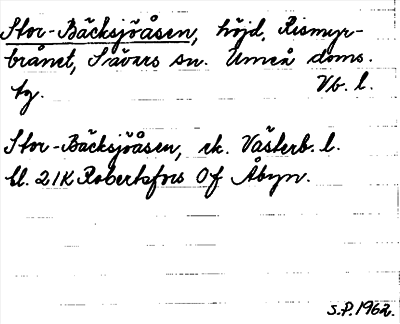 Stor-Bäcksjöåsen, höjd, Rismyr-
brånet, Sävars sn. Umeå doms.
tg. Vb. l.
Stor-Bäcksjöåsen, ek. Västerb. l.
bl. 21K Robertsfors 0f Åbyn.
S.P. 1962.